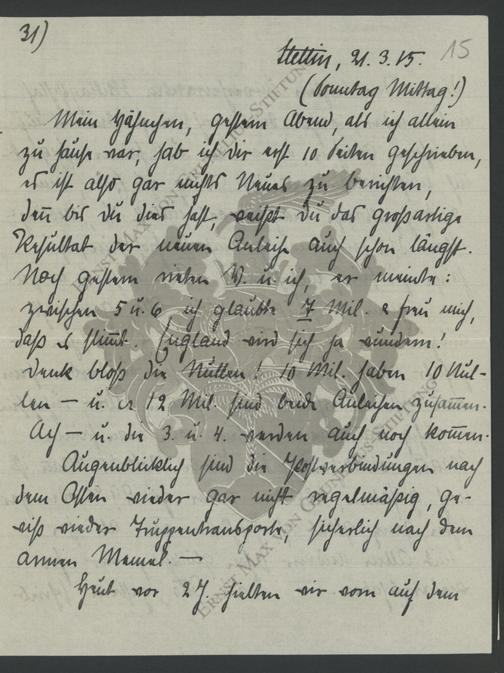 31)
15
Stettin, 21. 3. 15.
(Sonntag Mittag!)
Mein Hähnchen, gestern Abend, als ich allein
zu Hause war, hab ich dir erst 10 Seiten geschrieben,
es ist also gar nichts Neues zu berichten,
den̅ bis du dies hast weißt du das großartige
Resultat der neuen Anleihe auch schon längst.
Noch gestern rieten V. u. ich, er meinte:
zwischen 5 u. 6 ich glaubte 7 Mil. & freu mich,
daß es stim̅t. England wird sich ja wundern!
Denk bloß die Nullen! 10 Mil. haben 10 Nul-
len – u. ca 12 Mil. sind beide Anleihen zusam̅en.
Ach – u. die 3. u. 4. werden auch noch kom̅en.
Augenblicklich sind die Postverbindungen nach
dem Osten wieder gar nicht regelmäßig, ge-
wiß wieder Truppentransporte, sicherlich nach dem
armen Memel. —
Heut vor 2 J. hielten wir vorm auf dem
ERNST MAX VON GRUNELIUS-STIFTUNG
ERNST MAX VON GRUNELIUS-STIFTUNG